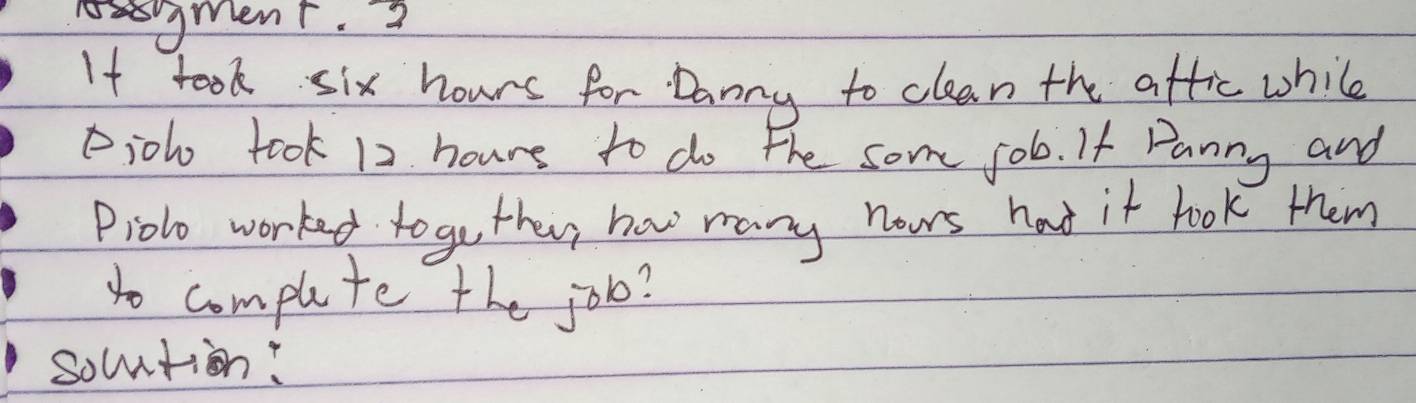 Assignment. 3
It took six hours for Danny to clean the attic while
Piolo took 12 hours to do the some job. If Danny and
Piolo worked together, how many hours had it took them
to complete the job?
solution: